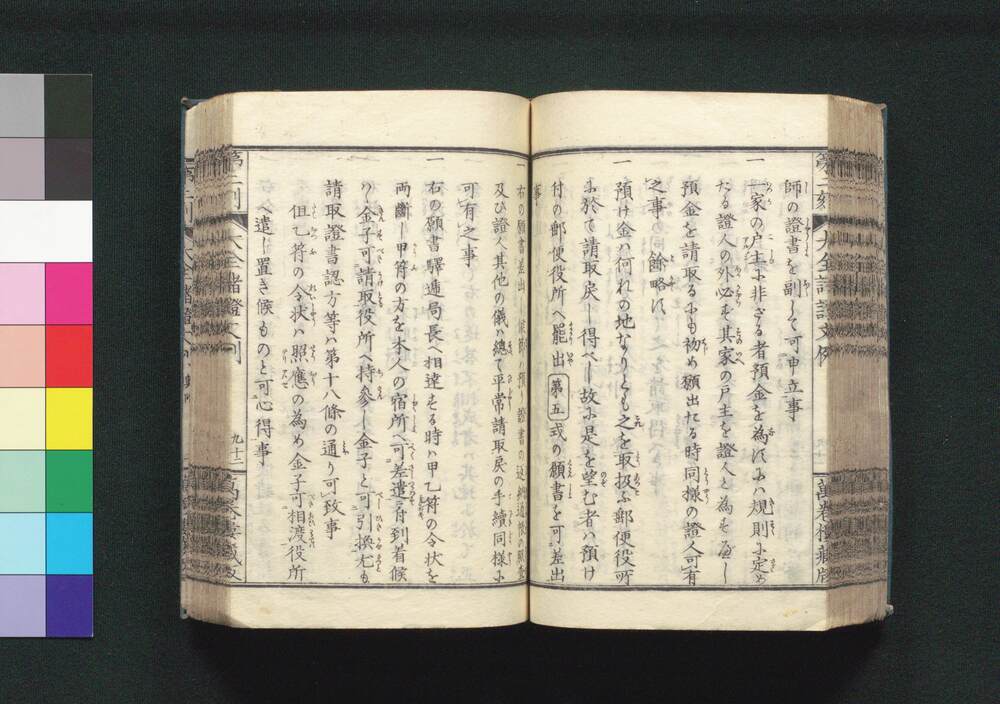 師の證書を副して可申立事
一 一家の戸主に非ざる者預金を為すにハ規則に定め
たる證人の外必ず其家の戸主を證人と為すべし
預金を請取るにも初め願出たる時同様の證人可有
之事 餘略す
一 預け金ハ何れの地なりとも之を取扱ふ郵便役所
に於て請取戻し得べし故に是を望む者ハ預け
付の郵便役所へ罷出第五式の願書を可差出
事
一 右の願書差出し
及び證人其他の儀ハ總て平常請取戻の手續同様に
可有之事
一 右の願書驛逓局長へ相達する時ハ甲乙符の令状を
両斷し甲符の方を本人の宿所へ可差遣に付到着候
ハヾ金子可請取役所へ持參し金子と可引換尤も
請取證書認方等ハ第十八條の通り可致事
但乙符の令状ハ照應の為め金子可相渡役所
へ遣し置き候ものと可心得事
九十二
萬巻樓藏版